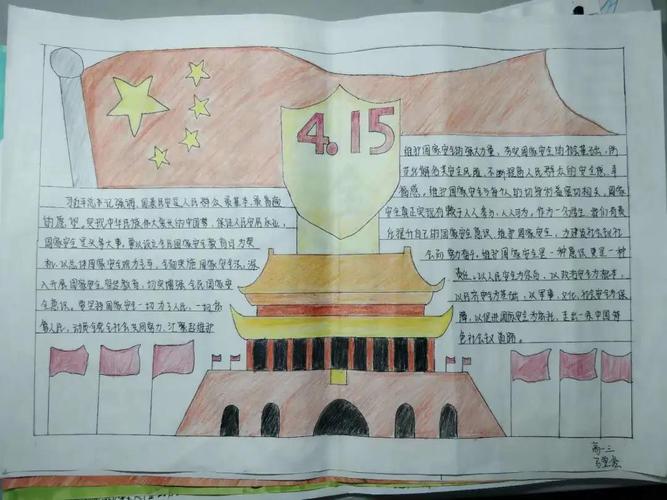 4.15
习近平总书记强调,国泰民安是人民群众最基本、最普遍
的愿望。实现中华民族伟大复兴的中国梦,保证人民安居乐业,
国家安全是头等大事。要以设立全民国家安全教育日为契
机,以总体国家安全观为指导,全面实施国家安全法,深
入开展国家安全宣传教育,切实增强全民国家安
全意识。要坚持国家安全一切为了人民,一切依
靠人民,动员全党全社会共同努力,汇聚起维护
维护国家安全的强大力量,夯实国家安全的社会基础,防
范化解各类安全风险,不断提高人民群众的安全感、幸
福感。维护国家安全与每个人的切身利益密切相关,国家
安全真正实现有赖于人人参与、人人尽力。作为一个学生,我们有责
任提升自己的国家安全意识,维护国家安全,为建设社会
会而努力奋斗。维护国家安全是一种意识更是一种
责任。以人民安全为宗旨,以政治安全为根本,
以经济安全为基础,以军事、文化、社会安全为保
障,以促进国际安全为依托,走出一条中国特
色社会主义道路。
高一三